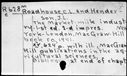 R628m
Roadhouse C.L. and Hender-
son, J.L.
The market milk indus-
try 1st ed. 2nd impres. New
York London, MacGraw Hill
Book Co. 1941.
XV, 624 p. with ill. MacGraw
Hill publications in the agri-
cultural sciences.